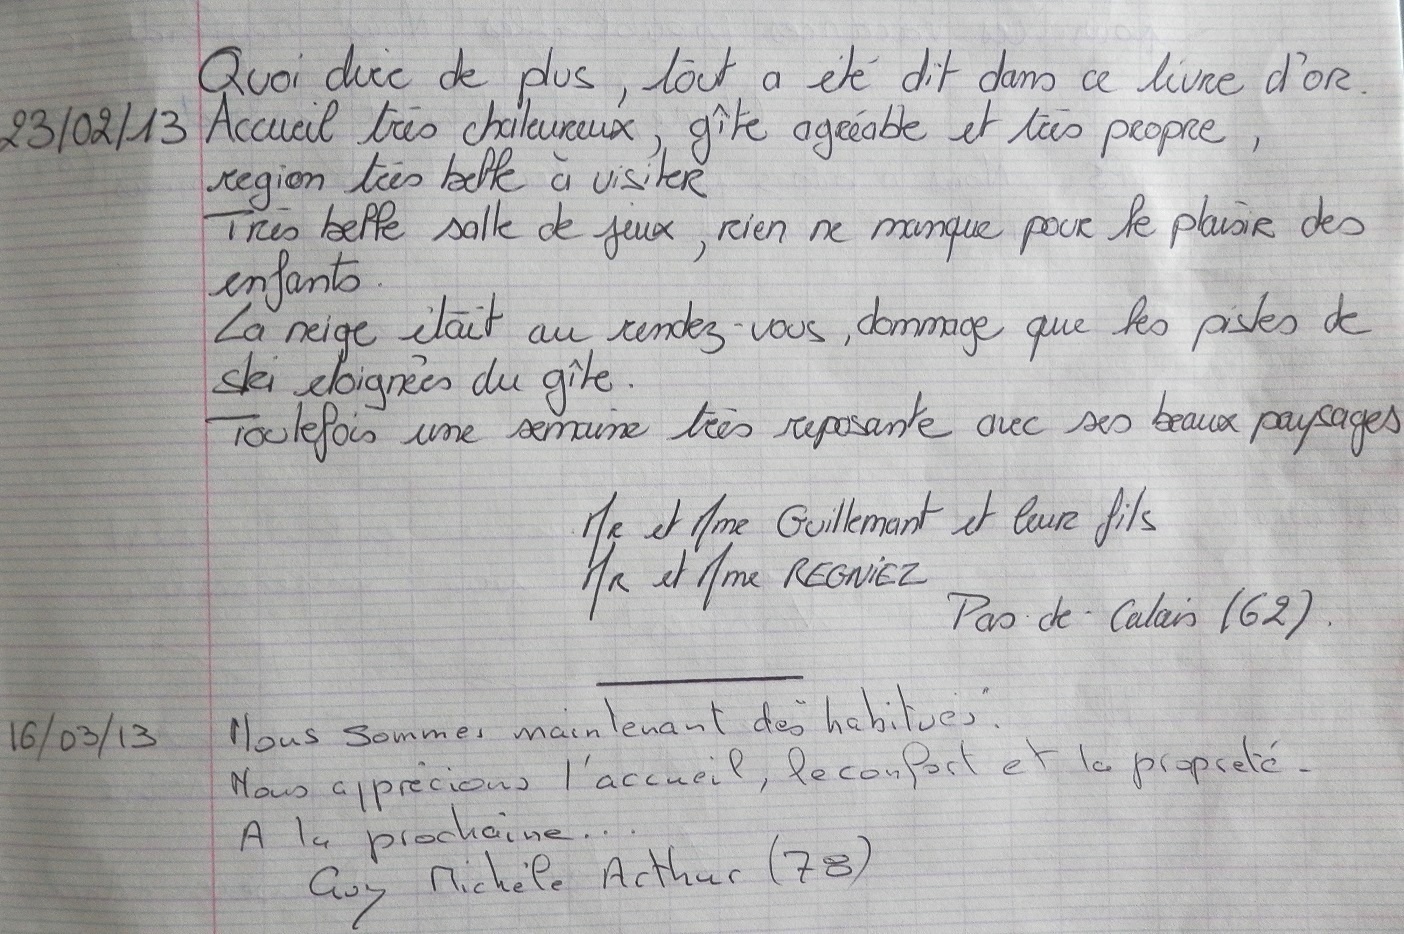 Quoi dire de plus, tout a été dit dans ce livre d'or.
23/02/13 Accueil très chaleureux, gîte agréable et très propre,
region très belle à visiter
Très belle salle de jeux, rien ne manque pour le plaisir des
enfants.
La neige était au rendez-vous, dommage que les pistes de
ski eloignées du gîte.
Toutefois une semaine très reposante avec ses beaux paysages
Mr et Mme Guillemant et leur fils
Mr et Mme REGNIEZ
Pas-de-Calais (62).
16/03/13 Nous sommes maintenant des "habitués".
Nous apprécions l'accueil, le confort et la propreté.
A la prochaine...
Guy Michèle Arthur (78)